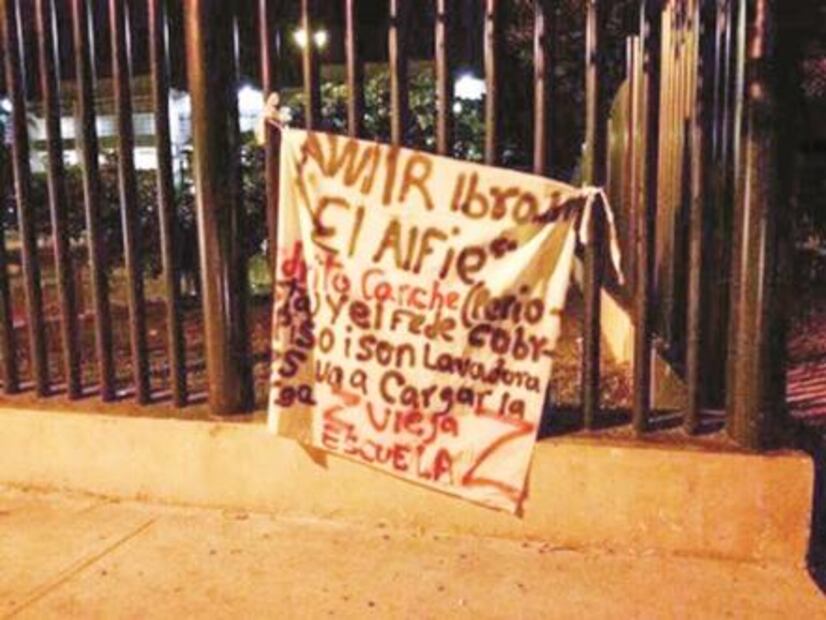 AMIR Ibra
El Alfie
drito Canche (Perio-
ta) y el Fede Cobr-
Piso ison Lavadora
s va a Cargar la
ga vieja
Z ESCUELA Z